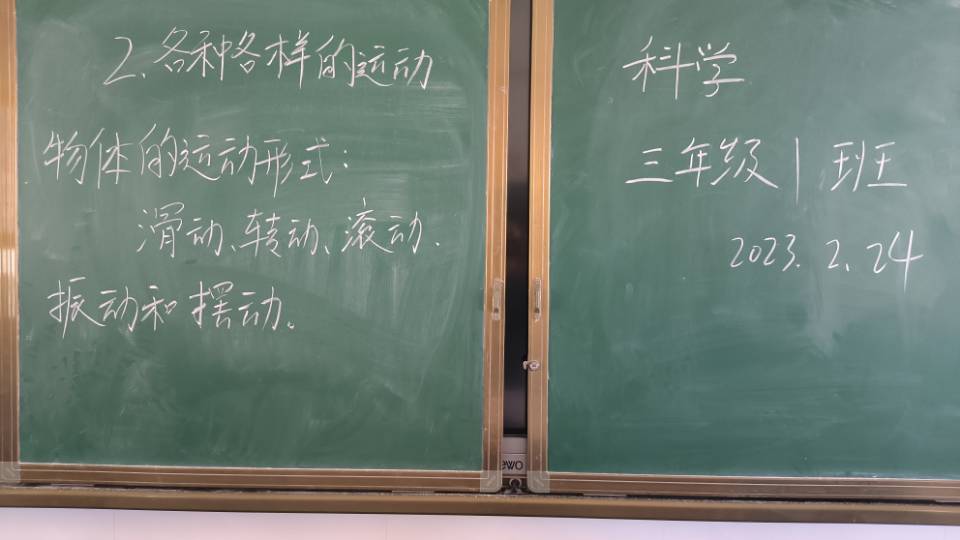 2.各种各样的运动
物体的运动形式:
滑动、转动、滚动.
振动和摆动。
科学
三年级1班
2023.2.24
ewo